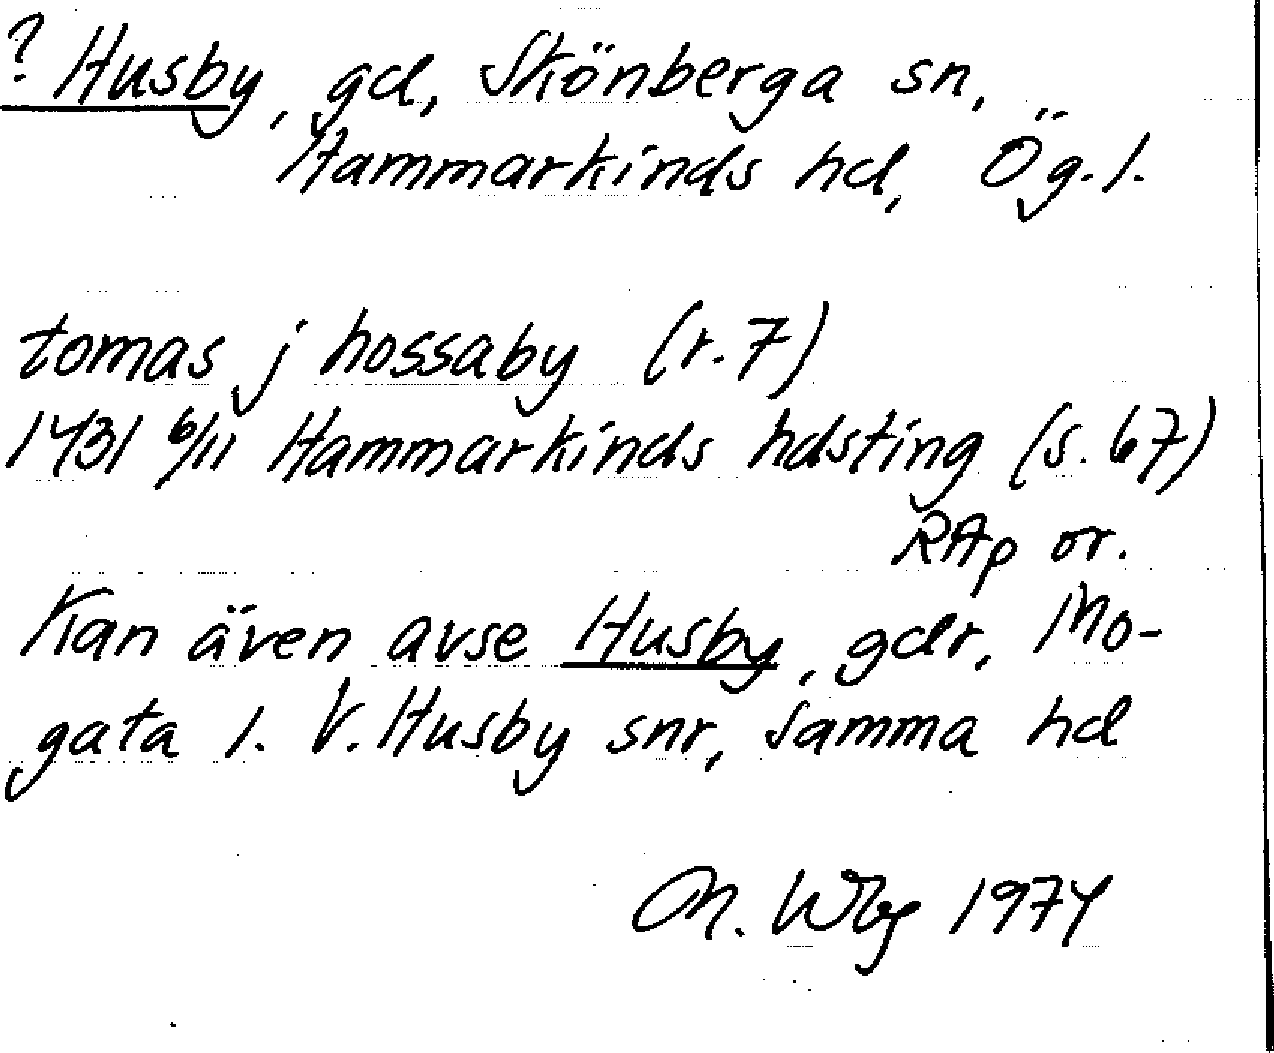 ? Husby, gd, Skönberga sn,
Hammarkinds hd, Ög. l.
tomas j hossaby (r. 7)
1431 6/11 Hammarkinds hdsting (s. 67)
RAp or.
Kan även avse Husby, gdr, Mo-
gata l. V. Husby snr, samma hd
M. Wbg 1974